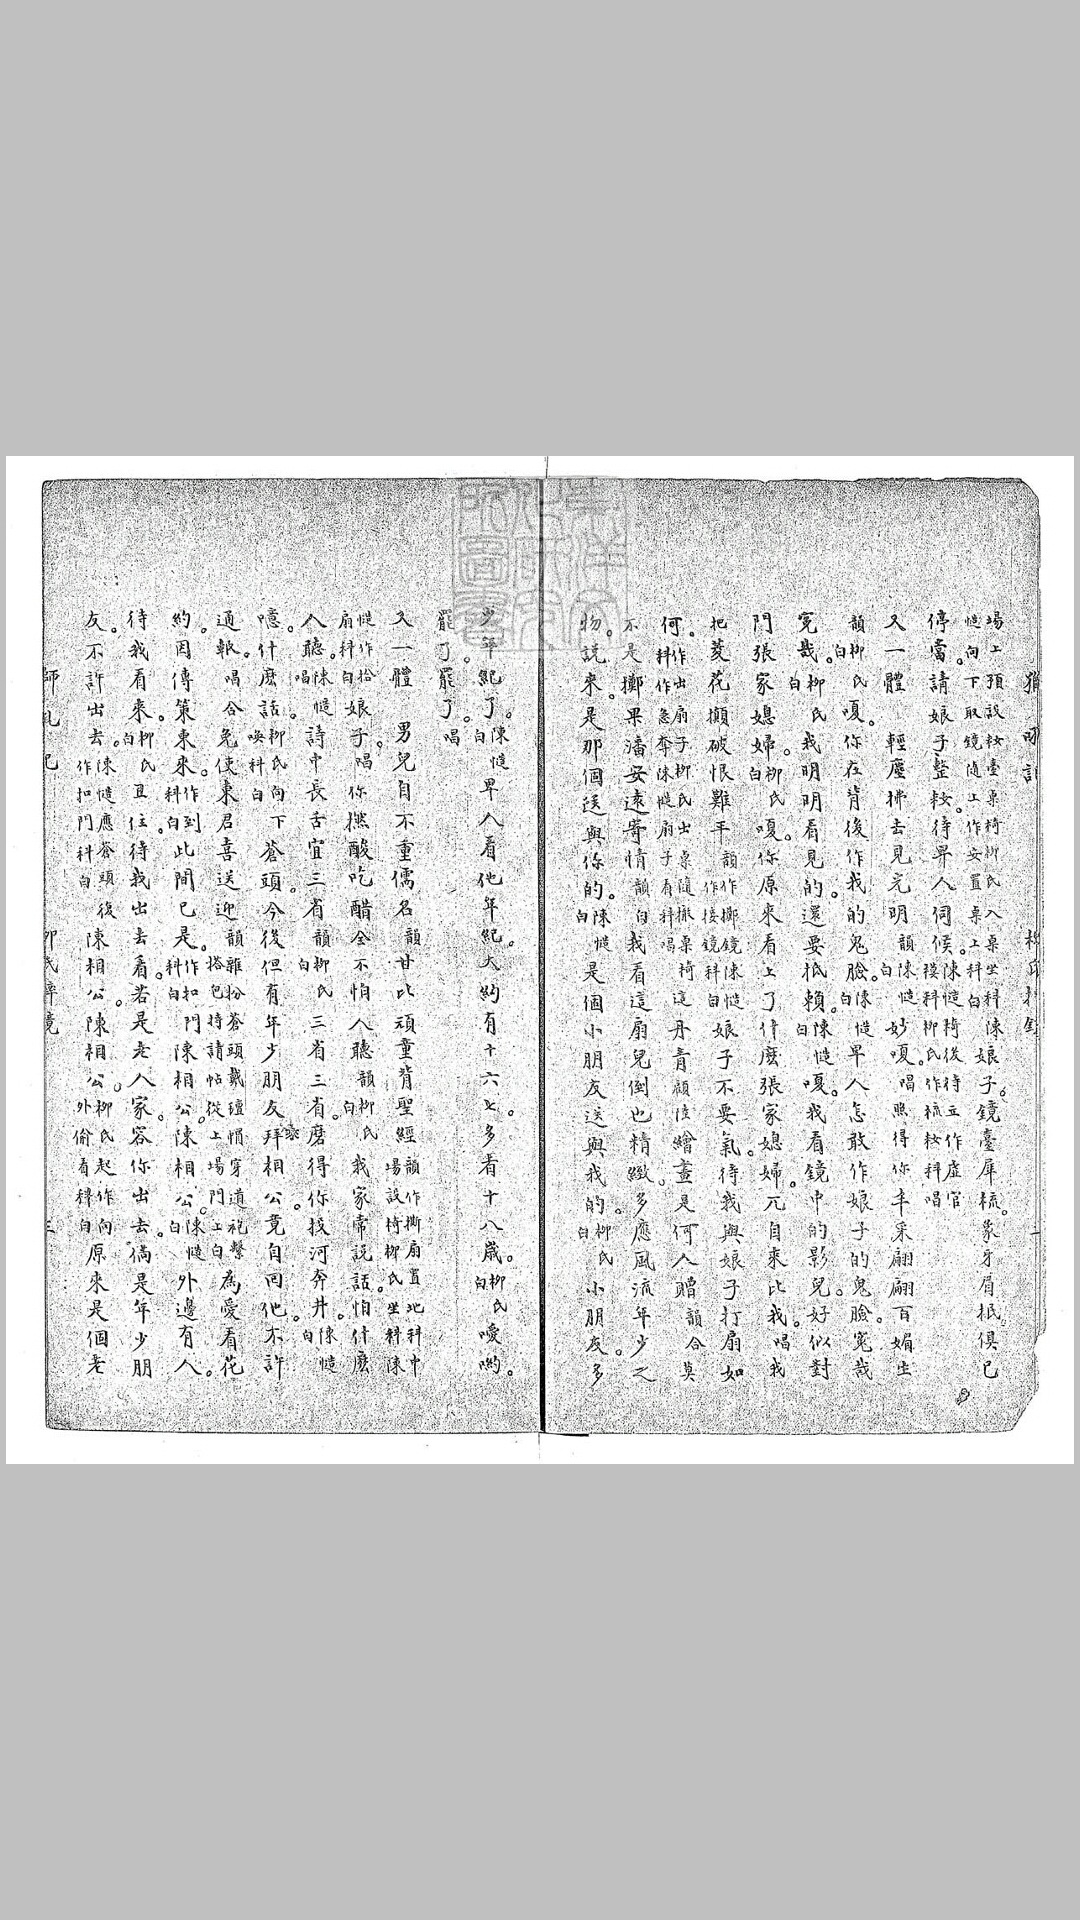 獅吼記
柳氏掠鏡
場上預設妝臺桌椅柳氏入桌坐科陳娘子鏡臺犀梳。象牙眉抿。俱已
慥向下取鏡隨上作安置桌上科白
停當。請娘子整妝。待卑人伺候。陳慥椅後侍立作虛官
模科柳氏作梳妝科唱
又一體 輕塵拂去見光明韻陳慥白妙嗄。唱照得你丰采翩翩百媚生
韻柳氏白嗄。你在背後作我的鬼臉。陳慥白卑人怎敢作娘子的鬼臉。冤哉
冤哉。柳氏白我明明看見的。還要抵賴。陳慥白嗄。我看鏡中的影兒。好似對
門張家媳婦。柳氏白嗄。你原來看上了什麼張家媳婦。兀自來比我。唱我
把菱花攧破恨難平韻作擲鏡陳慥作接鏡科白娘子不要氣。待我與娘子打扇如
何。作出扇子柳氏出桌隨撤桌椅科作急奪陳慥扇子看科唱這丹青顧陸繪畫是何人贈韻合莫
不是擲果潘安遠寄情韻白我看這扇兒倒也精緻。多應風流年少之
物。說來。是那個送與你的。陳慥白是個小朋友送與我的。柳氏白小朋友。多
少年紀了。陳慥白卑人看他年紀。大約有十六七。多看十八歲。柳氏白噯喲。
罷了罷了。唱
又一體 男兒自不重儒名韻甘比頑童背聖經韻作撕扇置地科中場設椅柳氏坐科陳
慥作拾扇科白娘子。唱你撚酸吃醋全不怕人聽韻柳氏白我家常說話。怕什麼
人聽。陳慥唱詩中長舌宜三省韻柳氏白三省三省。磨得你投河奔井。陳慥白
噫。什麼話。柳氏向下喚科白蒼頭。今後但有年少朋友拜相公。竟自回他。不許
通報。唱合免使東君喜送迎韻雜扮蒼頭戴氊帽穿道袍繫搭包持請帖從上場門上白為愛看花
約。因傳策柬來。作到科白此間已是。作扣門科白陳相公。陳相公。陳慥白外邊有人。
待我看來。柳氏白且住。待我出去看。若是老人家。容你出去。倘是年少朋
友。不許出去。陳慥應蒼頭復作扣門科白陳相公。陳相公。柳氏起作向外偷看科白原來是個老
師吼記
柳氏掠鏡
三